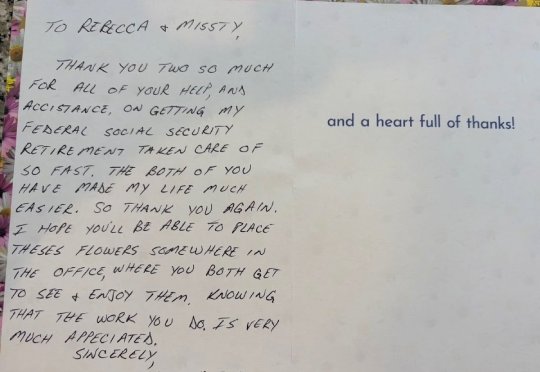 TO REBECCA & MISSTY,
THANK YOU TWO SO MUCH
FOR ALL OF YOUR HELP, AND
ACCISTANCE, ON GETTING MY
FEDERAL SOCIAL SECURITY
RETIREMENT TAKEN CARE OF
SO FAST. THE BOTH OF YOU
HAVE MADE MY LIFE MUCH
EASIER. SO THANK YOU AGAIN.
I HOPE YOU'LL BE ABLE TO PLACE
THESES FLOWERS SOMEWHERE IN
THE OFFICE, WHERE YOU BOTH GET
TO SEE & ENJOY THEM. KNOWING
THAT THE WORK YOU DO. IS VERY
MUCH APPECIATED.
SINCERELY,
and a heart full of thanks!